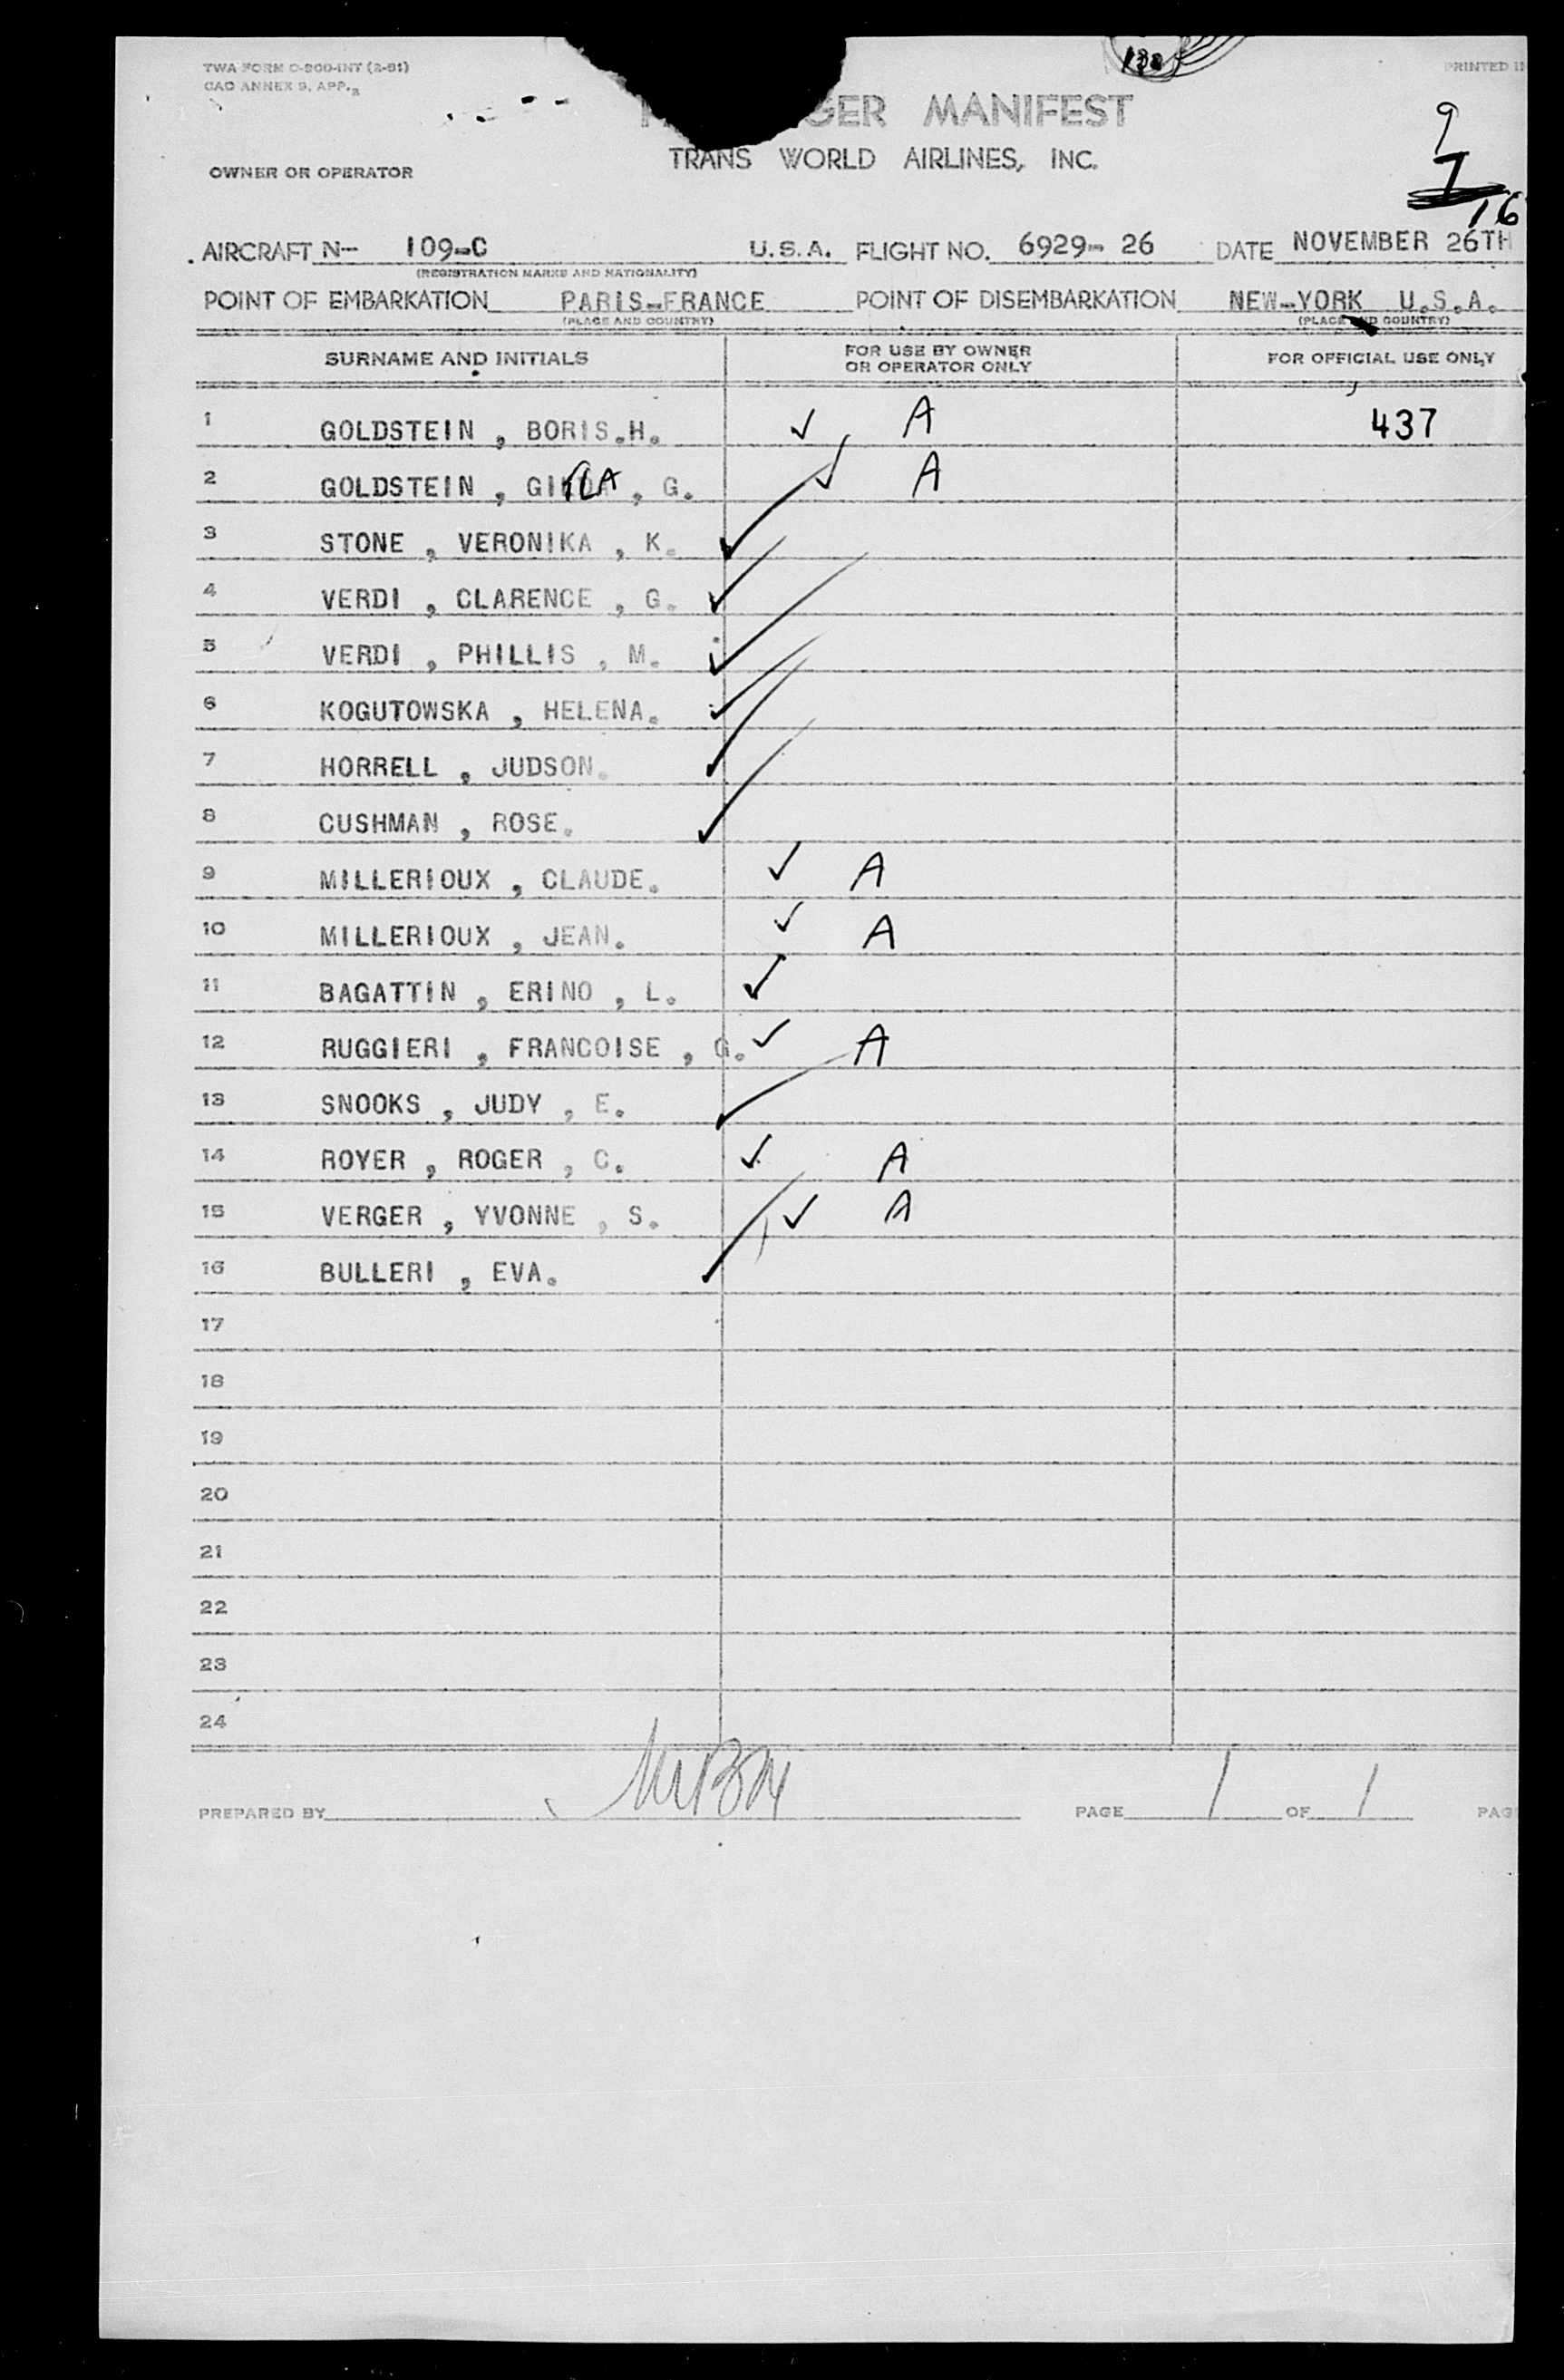 TWA FORM O-900-INT (2-51)
CAO ANNEX 9, APP.
PRINTED IN
GER MANIFEST
TRANS WORLD AIRLINES, INC.
OWNER OR OPERATOR
9
7
16
AIRCRAFT N- 109-C U.S.A. FLIGHT NO. 6929- 26 DATE NOVEMBER 26TH
(REGISTRATION MARKS AND NATIONALITY)
POINT OF EMBARKATION PARIS-FRANCE POINT OF DISEMBARKATION NEW-YORK U.S.A.
(PLACE AND COUNTRY) (PLACE AND COUNTRY)
SURNAME AND INITIALS FOR USE BY OWNER OR OPERATOR ONLY FOR OFFICIAL USE ONLY
1 GOLDSTEIN , BORIS.H. ✓ A 437
2 GOLDSTEIN , , G. ✓ A
3 STONE , VERONIKA , K. ✓
4 VERDI , CLARENCE , G. ✓
5 VERDI , PHILLIS , M. ✓
6 KOGUTOWSKA , HELENA. ✓
7 HORRELL , JUDSON. ✓
8 CUSHMAN , ROSE. ✓
9 MILLERIOUX , CLAUDE. ✓ A
10 MILLERIOUX , JEAN. ✓ A
11 BAGATTIN , ERINO , L. ✓
12 RUGGIERI , FRANCOISE , G. ✓ A
13 SNOOKS , JUDY , E. ✓
14 ROYER , ROGER , C. ✓ A
15 VERGER , YVONNE , S. ✓ A
16 BULLERI , EVA. ✓
17
18
19
20
21
22
23
24
PREPARED BY PAGE 1 OF 1 PAG